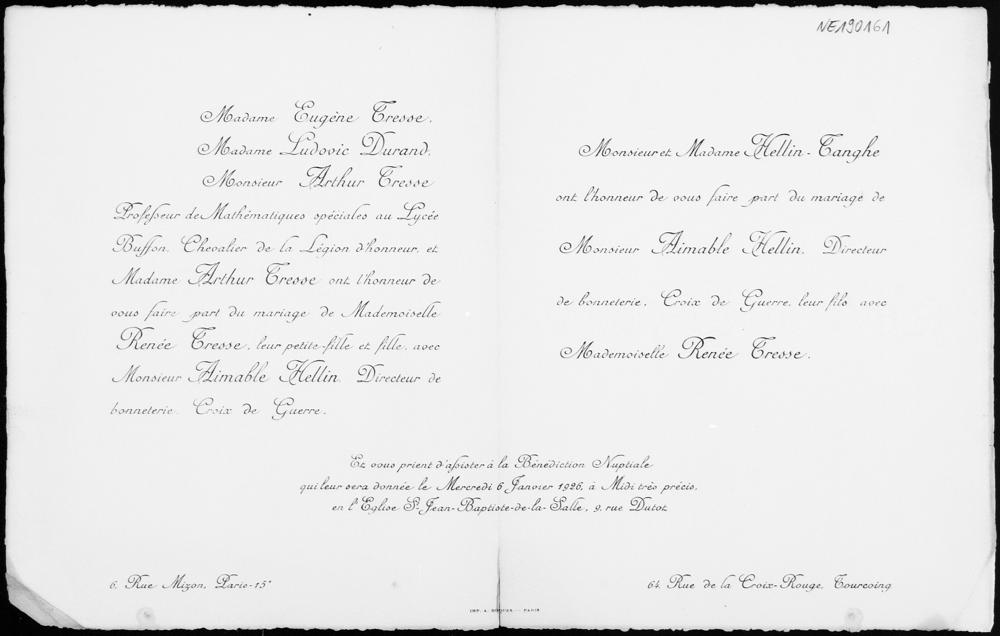 NE190161
Madame Eugène Tresse,
Madame Ludovic Durand,
Monsieur Arthur Tresse
Professeur de Mathématiques spéciales au Lycée
Buffon, Chevalier de la Légion d'honneur, et
Madame Arthur Tresse ont l'honneur de
vous faire part du mariage de Mademoiselle
Renée Tresse, leur petite-fille et fille, avec
Monsieur Aimable Hellin, Directeur de
bonneterie, Croix de Guerre.
Monsieur et Madame Hellin-Tanghe
ont l'honneur de vous faire part du mariage de
Monsieur Aimable Hellin, Directeur
de bonneterie, Croix de Guerre, leur fils avec
Mademoiselle Renée Tresse.
Et vous prient d'assister à la Bénédiction Nuptiale
qui leur sera donnée le Mercredi 6 Janvier 1926, à Midi très précis,
en l'Eglise St Jean-Baptiste-de-la-Salle, 9, rue Dutot
6, Rue Mizon, Paris-15e
64, Rue de la Croix-Rouge, Tourcoing
IMP. A. PARIS